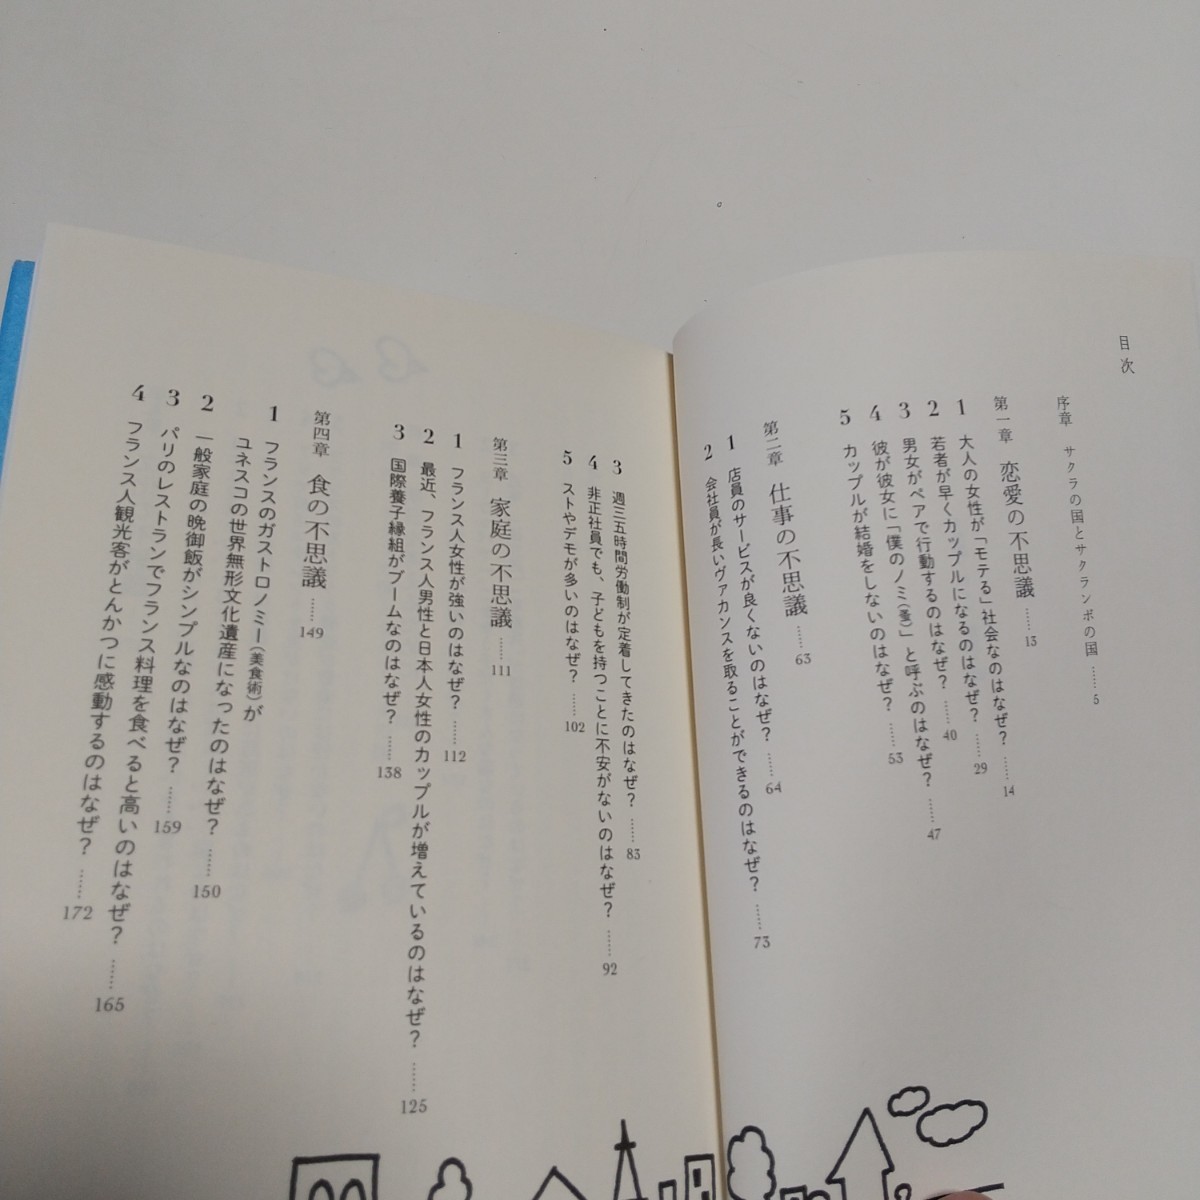 目次
序章 サクラの国とサクランボの国……5
第一章 恋愛の不思議……13
1 大人の女性が「モテる」社会なのはなぜ？……14
2 若者が早くカップルになるのはなぜ？……29
3 男女がペアで行動するのはなぜ？……40
4 彼が彼女に「僕のノミ（蚤）」と呼ぶのはなぜ？……47
5 カップルが結婚をしないのはなぜ？……53
第二章 仕事の不思議……63
1 店員のサービスが良くないのはなぜ？……64
2 会社員が長いヴァカンスを取ることができるのはなぜ？……73
3 週三五時間労働制が定着してきたのはなぜ？……83
4 非正社員でも、子どもを持つことに不安がないのはなぜ？……92
5 ストやデモが多いのはなぜ？……102
第三章 家庭の不思議……111
1 フランス人女性が強いのはなぜ？……112
2 最近、フランス人男性と日本人女性のカップルが増えているのはなぜ？……125
3 国際養子縁組がブームなのはなぜ？……138
第四章 食の不思議……149
1 フランスのガストロノミー（美食術）が
ユネスコの世界無形文化遺産になったのはなぜ？……150
2 一般家庭の晩御飯がシンプルなのはなぜ？……159
3 パリのレストランでフランス料理を食べると高いのはなぜ？……165
4 フランス人観光客がとんかつに感動するのはなぜ？……172